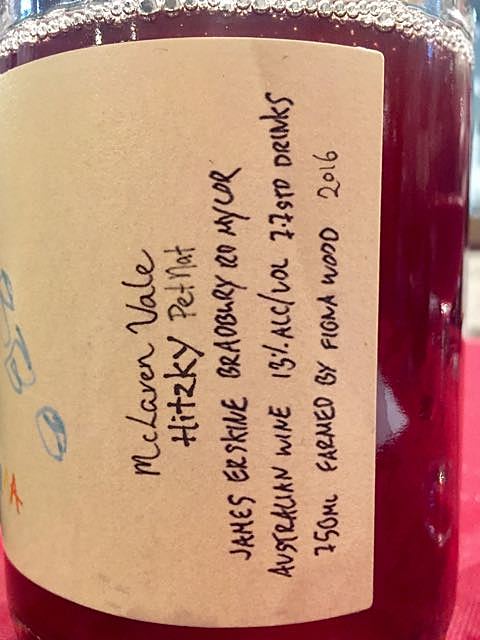 McLaren Vale
Hitzky Pet Nat
JAMES ERSKINE BRADBURY RD MYLOR
AUSTRALIAN WINE 13% ALC/VOL 7.7 STD DRINKS
750ML FARMED BY FIONA WOOD 2016